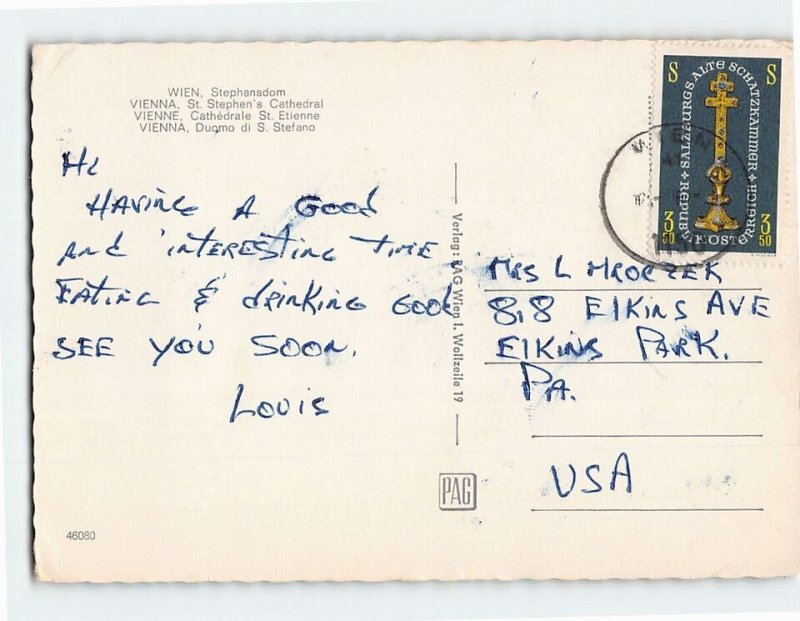 WIEN, Stephansdom
VIENNA, St. Stephen's Cathedral
VIENNE, Cathédrale St. Etienne
VIENNA, Duomo di S. Stefano
Hi
HAVING A GOOD
AND INTERESTING TIME
EATING & DRINKING GOOD
SEE YOU SOON.
LOUIS
46080
Verlag: PAG Wien I. Wollzeile 19
PAG
S S
SALZBURGS ALTE SCHATZKAMMER
REPUBLIK ÖSTERREICH
3 50 3 50
WIEN
MRS L MROCZEK
818 ELKINS AVE
ELKINS PARK.
PA.
USA